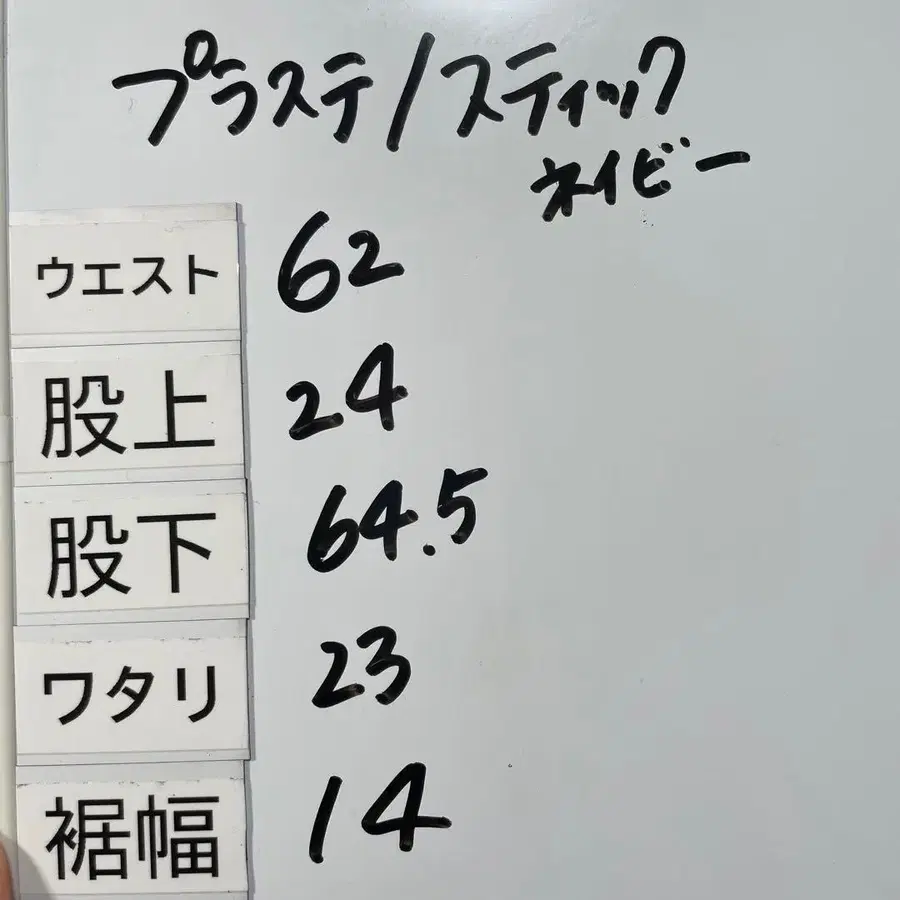 プラステ/スティック
ネイビー
ウエスト 62
股上 24
股下 64.5
ワタリ 23
裾幅 14